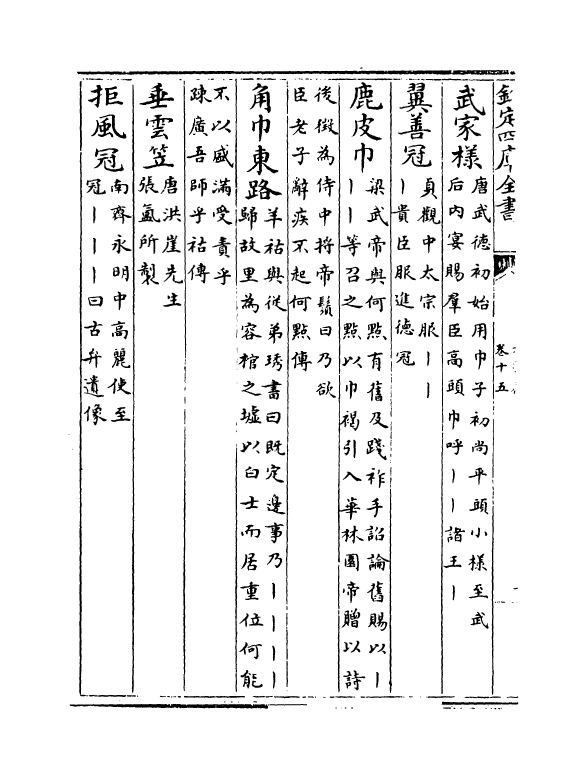 欽定四庫全書
卷十五
武家様 唐武德初始用巾子初尚平頭小様至武
后内宴賜羣臣高頭巾呼丨丨諸王丨
翼善冠 貞觀中太宗服丨丨
丨貴臣服進德冠
鹿皮巾 梁武帝與何㸃有舊及踐祚手詔論舊賜以丨
丨丨等召之㸃以巾褐引入華林園帝贈以詩
後徴為侍中捋帝鬚曰乃欲
臣老子辭疾不起何㸃傳
角巾東路 羊祜與從弟琇書曰既定邊事乃丨丨丨丨
歸故里為容棺之墟以白士而居重位何能
不以盛滿受責乎
疎廣吾師乎祜傳
垂雲笠 唐洪崖先生
張氳所製
拒風冠 南齊永明中高麗使至
冠丨丨丨曰古弁遺像